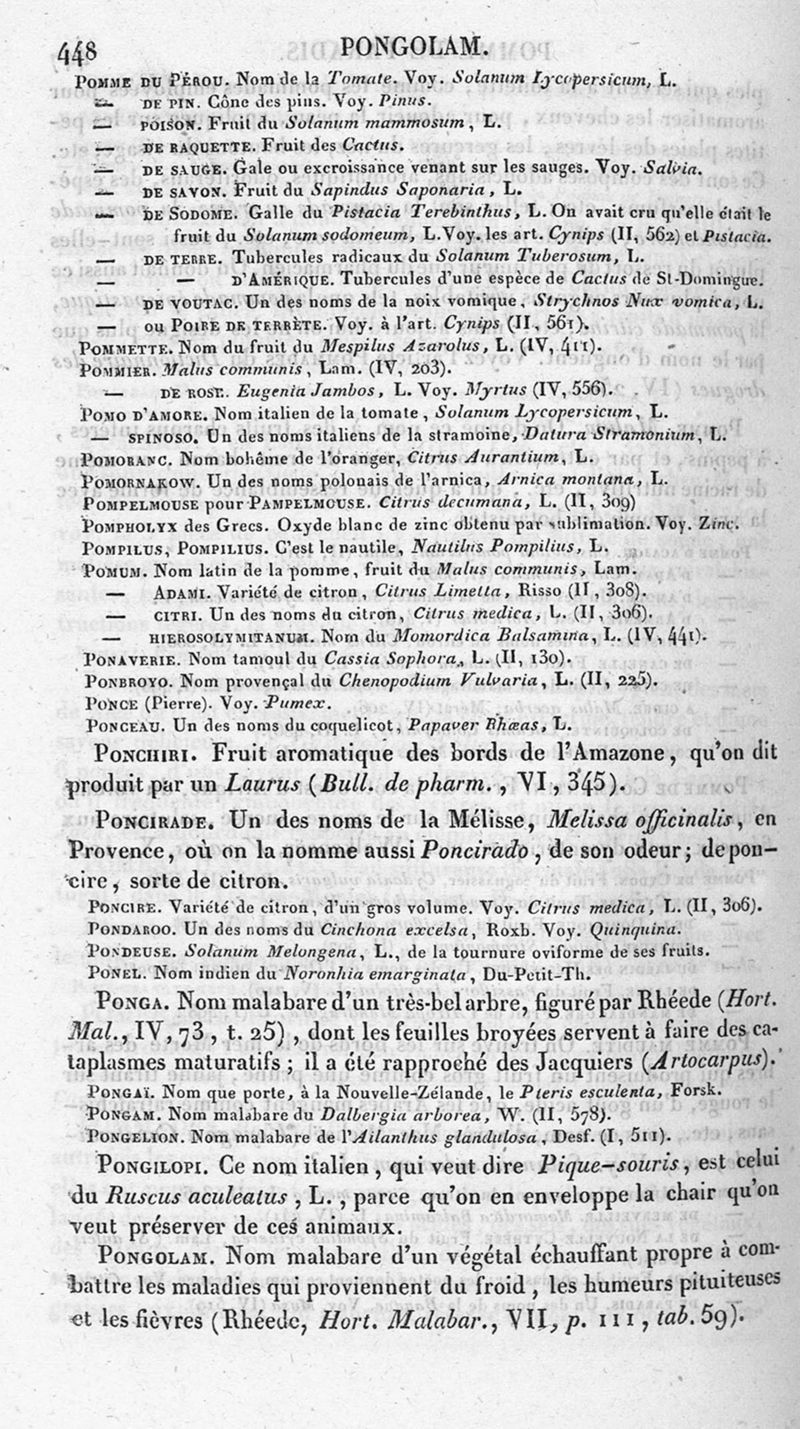 448 PONGOLAM.
POMME DU PÉROU. Nom de la Tomate. Voy. Solanum Lycopersicum, L.
— DE PIN. Cône des pins. Voy. Pinus.
— POISON. Fruit du Solanum mammosum, L.
— DE RAQUETTE. Fruit des Cactus.
— DE SAUGE. Gale ou excroissance venant sur les sauges. Voy. Salvia.
— DE SAVON. Fruit du Sapindus Saponaria, L.
— DE SODOME. Galle du Pistacia Terebinthus, L. On avait cru qu'elle était le
fruit du Solanum sodomeum, L. Voy. les art. Cynips (II, 562) et Pistacia.
— DE TERRE. Tubercules radicaux du Solanum Tuberosum, L.
— — D'AMÉRIQUE. Tubercules d'une espèce de Cactus de St-Domingue.
— DE VOUTAC. Un des noms de la noix vomique, Strychnos Nux vomica, L.
— OU POIRE DE TERRÈTE. Voy. à l'art. Cynips (II, 561).
POMMETTE. Nom du fruit du Mespilus Azarolus, L. (IV, 411).
POMMIER. Malus communis, Lam. (IV, 203).
— DE ROSE. Eugenia Jambos, L. Voy. Myrtus (IV, 556).
POMO D'AMORE. Nom italien de la tomate, Solanum Lycopersicum, L.
— SPINOSO. Un des noms italiens de la stramoine, Datura Stramonium, L.
POMORANC. Nom bohême de l'oranger, Citrus Aurantium, L.
POMORNAKOW. Un des noms polonais de l'arnica, Arnica montana, L.
POMPELMOUSE pour PAMPELMOUSE. Citrus decumana, L. (II, 309)
POMPHOLYX des Grecs. Oxyde blanc de zinc obtenu par sublimation. Voy. Zinc.
POMPILUS, POMPILIUS. C'est le nautile, Nautilus Pompilius, L.
POMUM. Nom latin de la pomme, fruit du Malus communis, Lam.
— ADAMI. Variété de citron, Citrus Limetta, Risso (II, 308).
— CITRI. Un des noms du citron, Citrus medica, L. (II, 306).
— HIEROSOLYMITANUM. Nom du Momordica Balsamina, L. (IV, 441).
PONAVERIE. Nom tamoul du Cassia Sophora, L. (II, 130).
PONBROYO. Nom provençal du Chenopodium Vulvaria, L. (II, 225).
PONCE (Pierre). Voy. Pumex.
PONCEAU. Un des noms du coquelicot, Papaver Rhæas, L.
PONCHIRI. Fruit aromatique des bords de l'Amazone, qu'on dit
produit par un Laurus (Bull. de pharm., VI, 345).
PONCIRADE. Un des noms de la Mélisse, Melissa officinalis, en
Provence, où on la nomme aussi Poncirado, de son odeur; de pon-
cire, sorte de citron.
PONCIRE. Variété de citron, d'un gros volume. Voy. Citrus medica, L. (II, 306).
PONDAROO. Un des noms du Cinchona excelsa, Roxb. Voy. Quinquina.
PONDEUSE. Solanum Melongena, L., de la tournure oviforme de ses fruits.
PONEL. Nom indien du Noronhia emarginata, Du-Petit-Th.
PONGA. Nom malabare d'un très-bel arbre, figuré par Rhéede (Hort.
Mal., IV, 73, t. 25), dont les feuilles broyées servent à faire des ca-
taplasmes maturatifs; il a été rapproché des Jacquiers (Artocarpus).
PONGAÏ. Nom que porte, à la Nouvelle-Zélande, le Pteris esculenta, Forsk.
PONGAM. Nom malabare du Dalbergia arborea, W. (II, 578).
PONGELION. Nom malabare de l'Ailanthus glandulosa, Desf. (I, 511).
PONGILOPI. Ce nom italien, qui veut dire Pique-souris, est celui
du Ruscus aculeatus, L., parce qu'on en enveloppe la chair qu'on
veut préserver de ces animaux.
PONGOLAM. Nom malabare d'un végétal échauffant propre à com-
battre les maladies qui proviennent du froid, les humeurs pituiteuses
et les fièvres (Rhéede, Hort. Malabar., VII, p. 111, tab. 59).